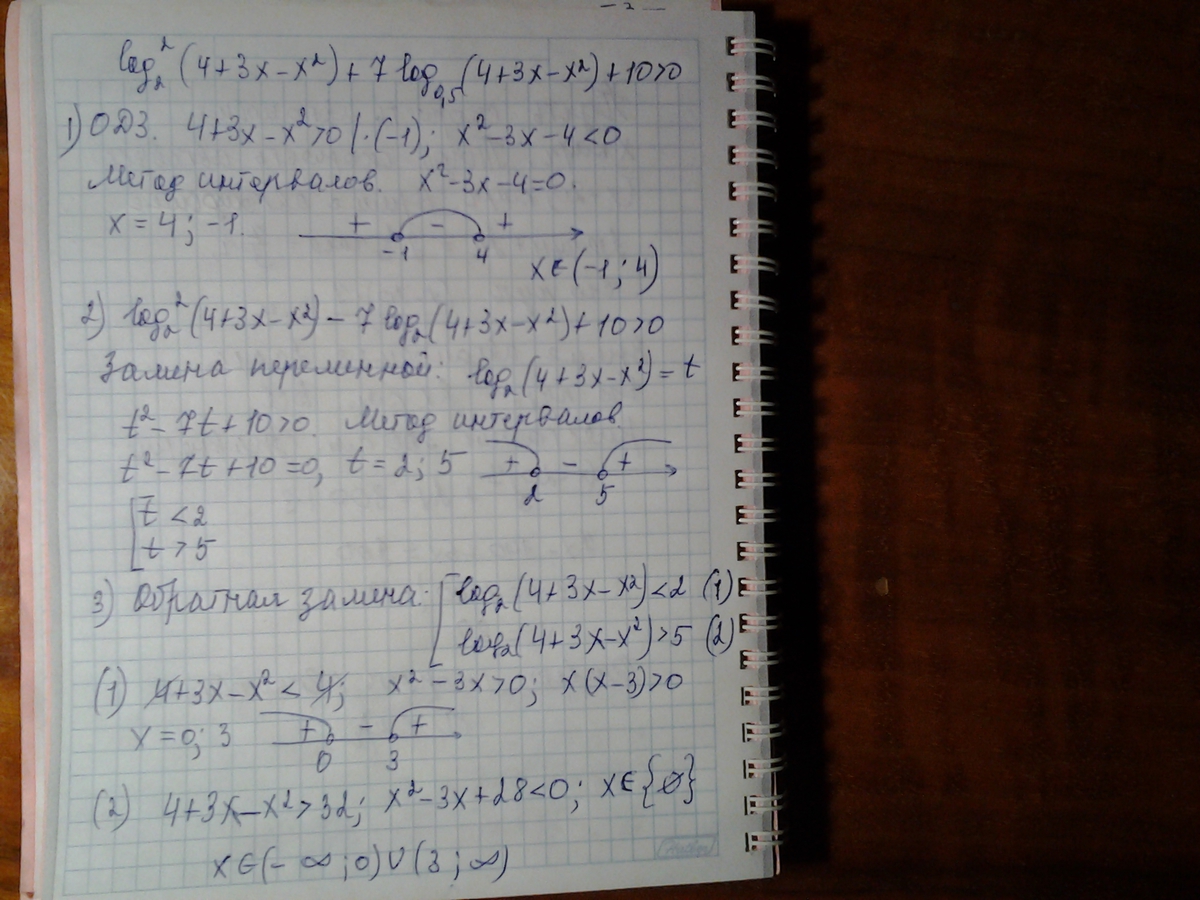 log₂²(4+3x-x²)+7log₀,₅(4+3x-x²)+10>0
1) ОДЗ. 4+3x-x²>0 |·(-1); x²-3x-4<0
Метод интервалов. x²-3x-4=0.
x=4; -1. + - +
-1 4
x∈(-1; 4)
2) log₂²(4+3x-x²)-7log₂(4+3x-x²)+10>0
Замена переменной: log₂(4+3x-x²)=t
t²-7t+10>0. Метод интервалов.
t²-7t+10=0, t=2; 5 + - +
2 5
[t<2
[t>5
3) Обратная замена: [log₂(4+3x-x²)<2 (1)
[log₂(4+3x-x²)>5 (2)
(1) 4+3x-x²<4; x²-3x>0; x(x-3)>0
x=0; 3 + - +
0 3
(2) 4+3x-x²>32; x²-3x+28<0; x∈{∅}
x∈(-∞; 0)∪(3; ∞)